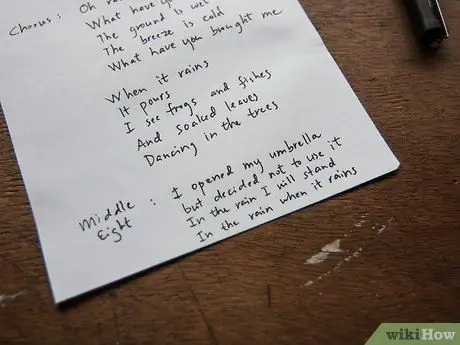 Chorus : Oh
What have
The ground is wet
The breeze is cold
What have you brought me
When it rains
It pours
I see frogs and fishes
And soaked leaves
Dancing in the trees
Middle Eight : I opened my umbrella
but decided not to use it
In the rain I will stand
In the rain when it rains
wikiHow